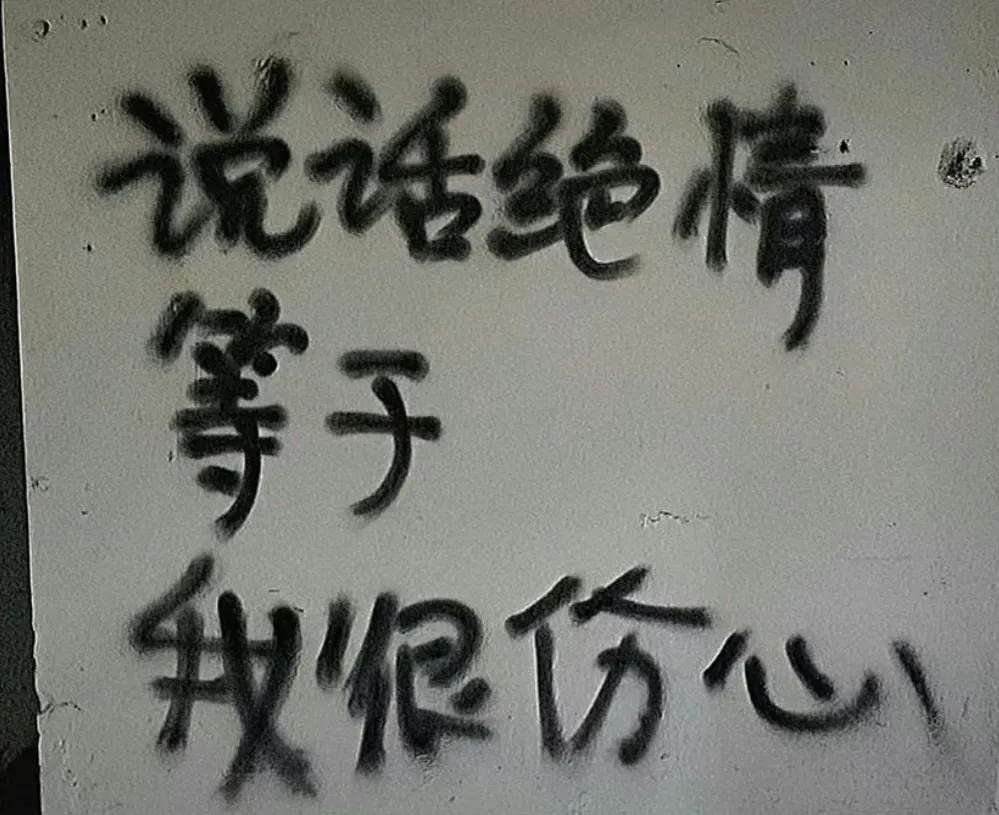 说话绝情
等于
我恨伤心